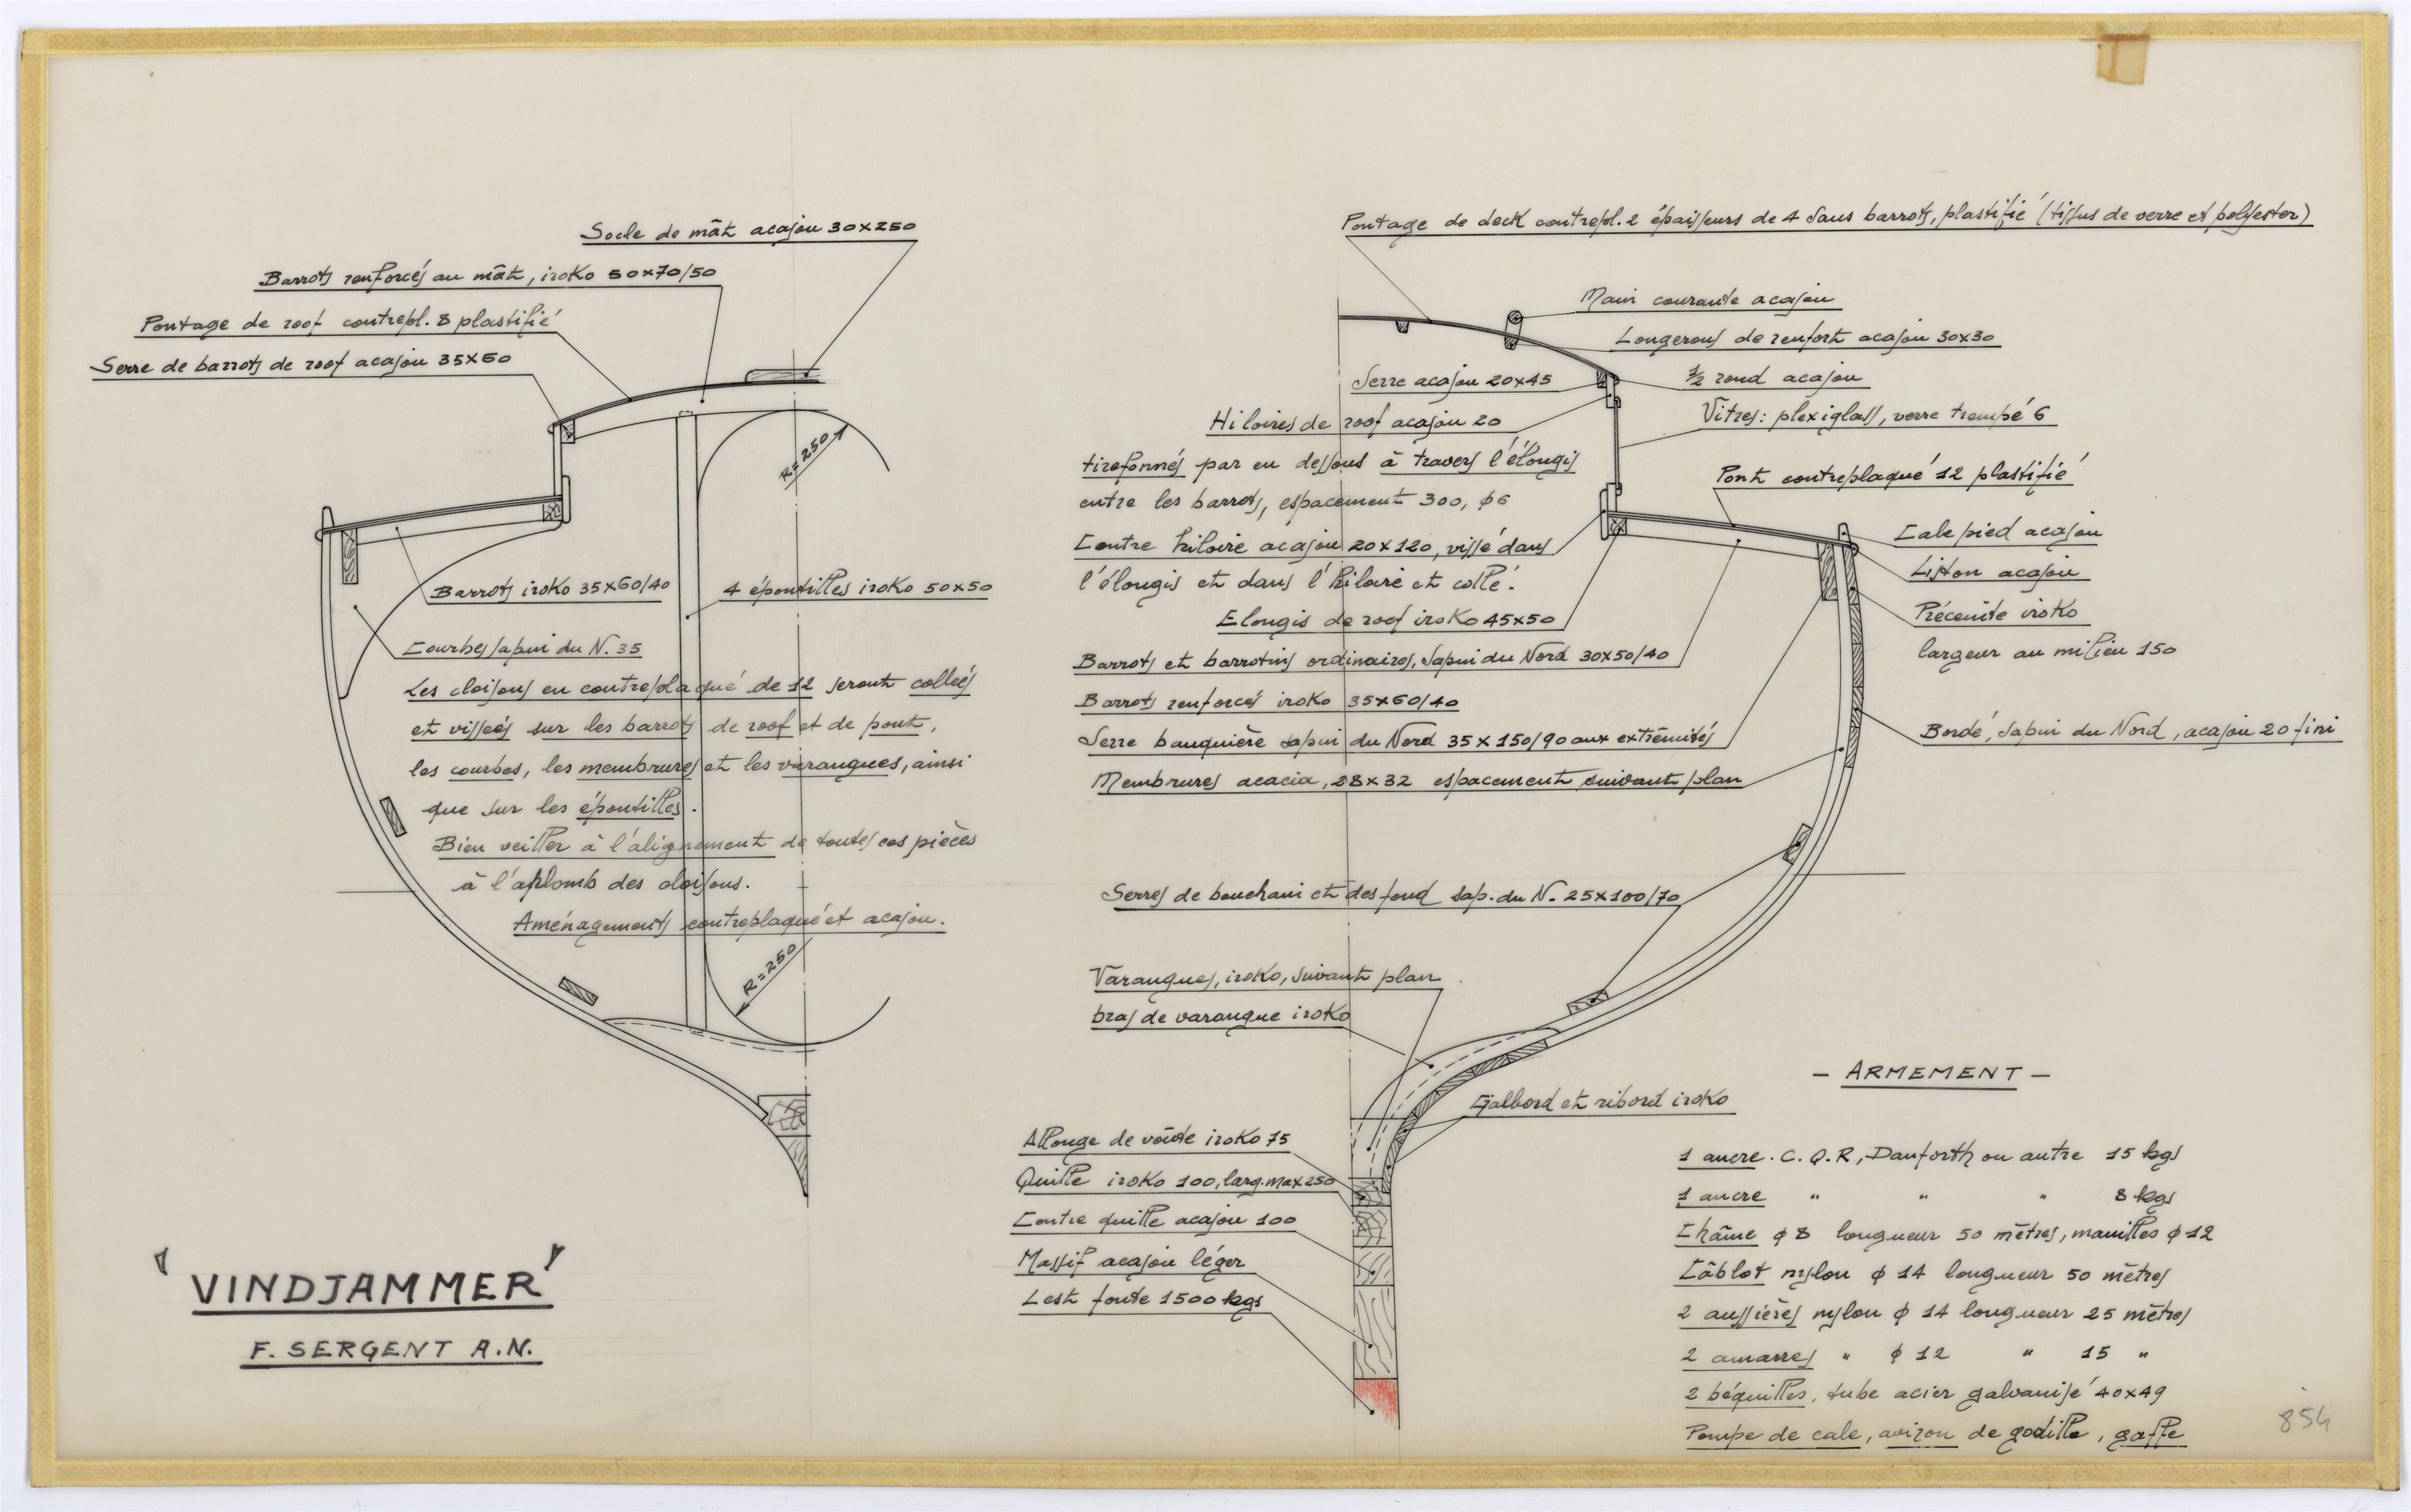 Socle de mât acajou 30x250
Barrots renforcés au mât, iroko 50x70/50
Pontage de roof contrepl. 8 plastifié
Serre de barrots de roof acajou 35x60
R=250
Barrots iroko 35x60/40
4 épontilles iroko 50x50
Courbes sapin du N. 35
Les cloisons en contreplaqué de 12 seront collées
et vissées sur les barrots de roof et de pont,
les courbes, les membrures et les varangues, ainsi
que sur les épontilles.
Bien veiller à l'alignement de toutes ces pièces
à l'aplomb des cloisons.
Aménagements contreplaqué et acajou.
R=250
'VINDJAMMER'
F. SERGENT A.N.
Pontage de deck contrepl. 2 épaisseurs de 4 sans barrots, plastifié (tissus de verre et polyester)
Main courante acajou
Longerons de renfort acajou 30x30
Serre acajou 20x45
1/2 rond acajou
Hiloires de roof acajou 20
Vitres: plexiglass, verre trempé 6
tirefonnés par en dessous à travers l'élongis
entre les barrots, espacement 300, φ6
Pont contreplaqué 12 plastifié
Contre hiloire acajou 20x120, vissé dans
l'élongis et dans l'hiloire et collé.
Cale pied acajou
Liston acajou
Elongis de roof iroko 45x50
Préceinte iroko
largeur au milieu 150
Barrots et barrotins ordinaires, sapin du Nord 30x50/40
Barrots renforcés iroko 35x60/40
Serre bauquière sapin du Nord 35x150/90 aux extrémités
Bordé, sapin du Nord, acajou 20 fini
Membrures acacia, 28x32 espacement suivant plan
Serres de bouchain et des fond sap. du N. 25x100/70
Varangues, iroko, suivant plan
bras de varangue iroko
Galbord et ribord iroko
Allonge de voûte iroko 75
Quille iroko 100, larg. max 250
Contre quille acajou 100
Massif acajou léger
Lest fonte 1500 kgs
- ARMEMENT -
1 ancre. C.Q.R, Danforth ou autre 15 kgs
1 ancre " " " 8 kgs
Chaîne φ 8 longueur 50 mètres, manilles φ 12
Câblot nylon φ 14 longueur 50 mètres
2 aussières nylon φ 14 longueur 25 mètres
2 amarres " φ 12 " 15 "
2 béquilles, tube acier galvanisé 40x49
Pompe de cale, aviron de godille, gaffe
854